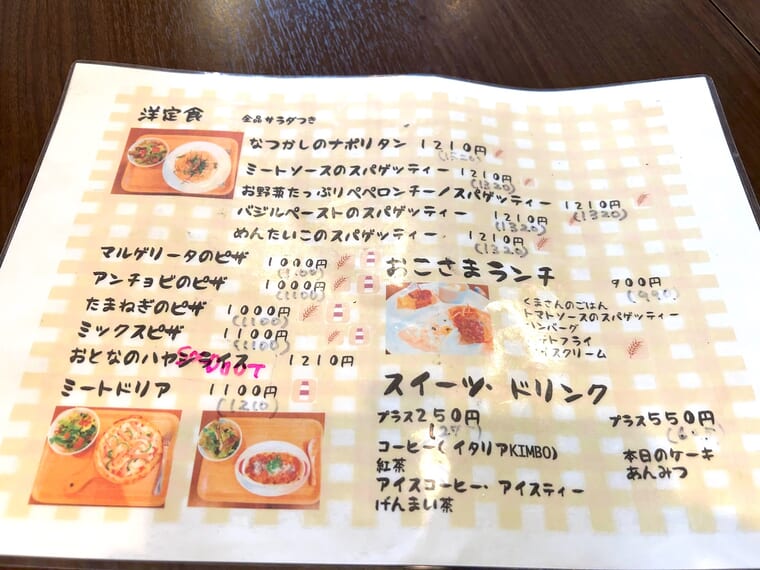 洋定食 全品サラダつき
なつかしのナポリタン 1210円
(1320)
ミートソースのスパゲッティー 1210円
(1320)
お野菜たっぷりペペロンチーノスパゲッティー 1210円
(1320)
バジルペーストのスパゲッティー 1210円
(1320)
めんたいこのスパゲッティー 1210円
(1320)
マルゲリータのピザ 1000円
(1100)
アンチョビのピザ 1000円
(1100)
たまねぎのピザ 1000円
(1100)
ミックスピザ 1100円
おとなのハヤシライス 1210円
ミートドリア 1100円
(1210)
おこさまランチ 900円
(990)
くまさんのごはん
トマトソースのスパゲッティー
ハンバーグ
スイーツ・ドリンク
プラス250円
コーヒー(イタリアKIMBO)
紅茶
アイスコーヒー・アイスティー
げんまい茶
プラス550円
本日のケーキ
あんみつ